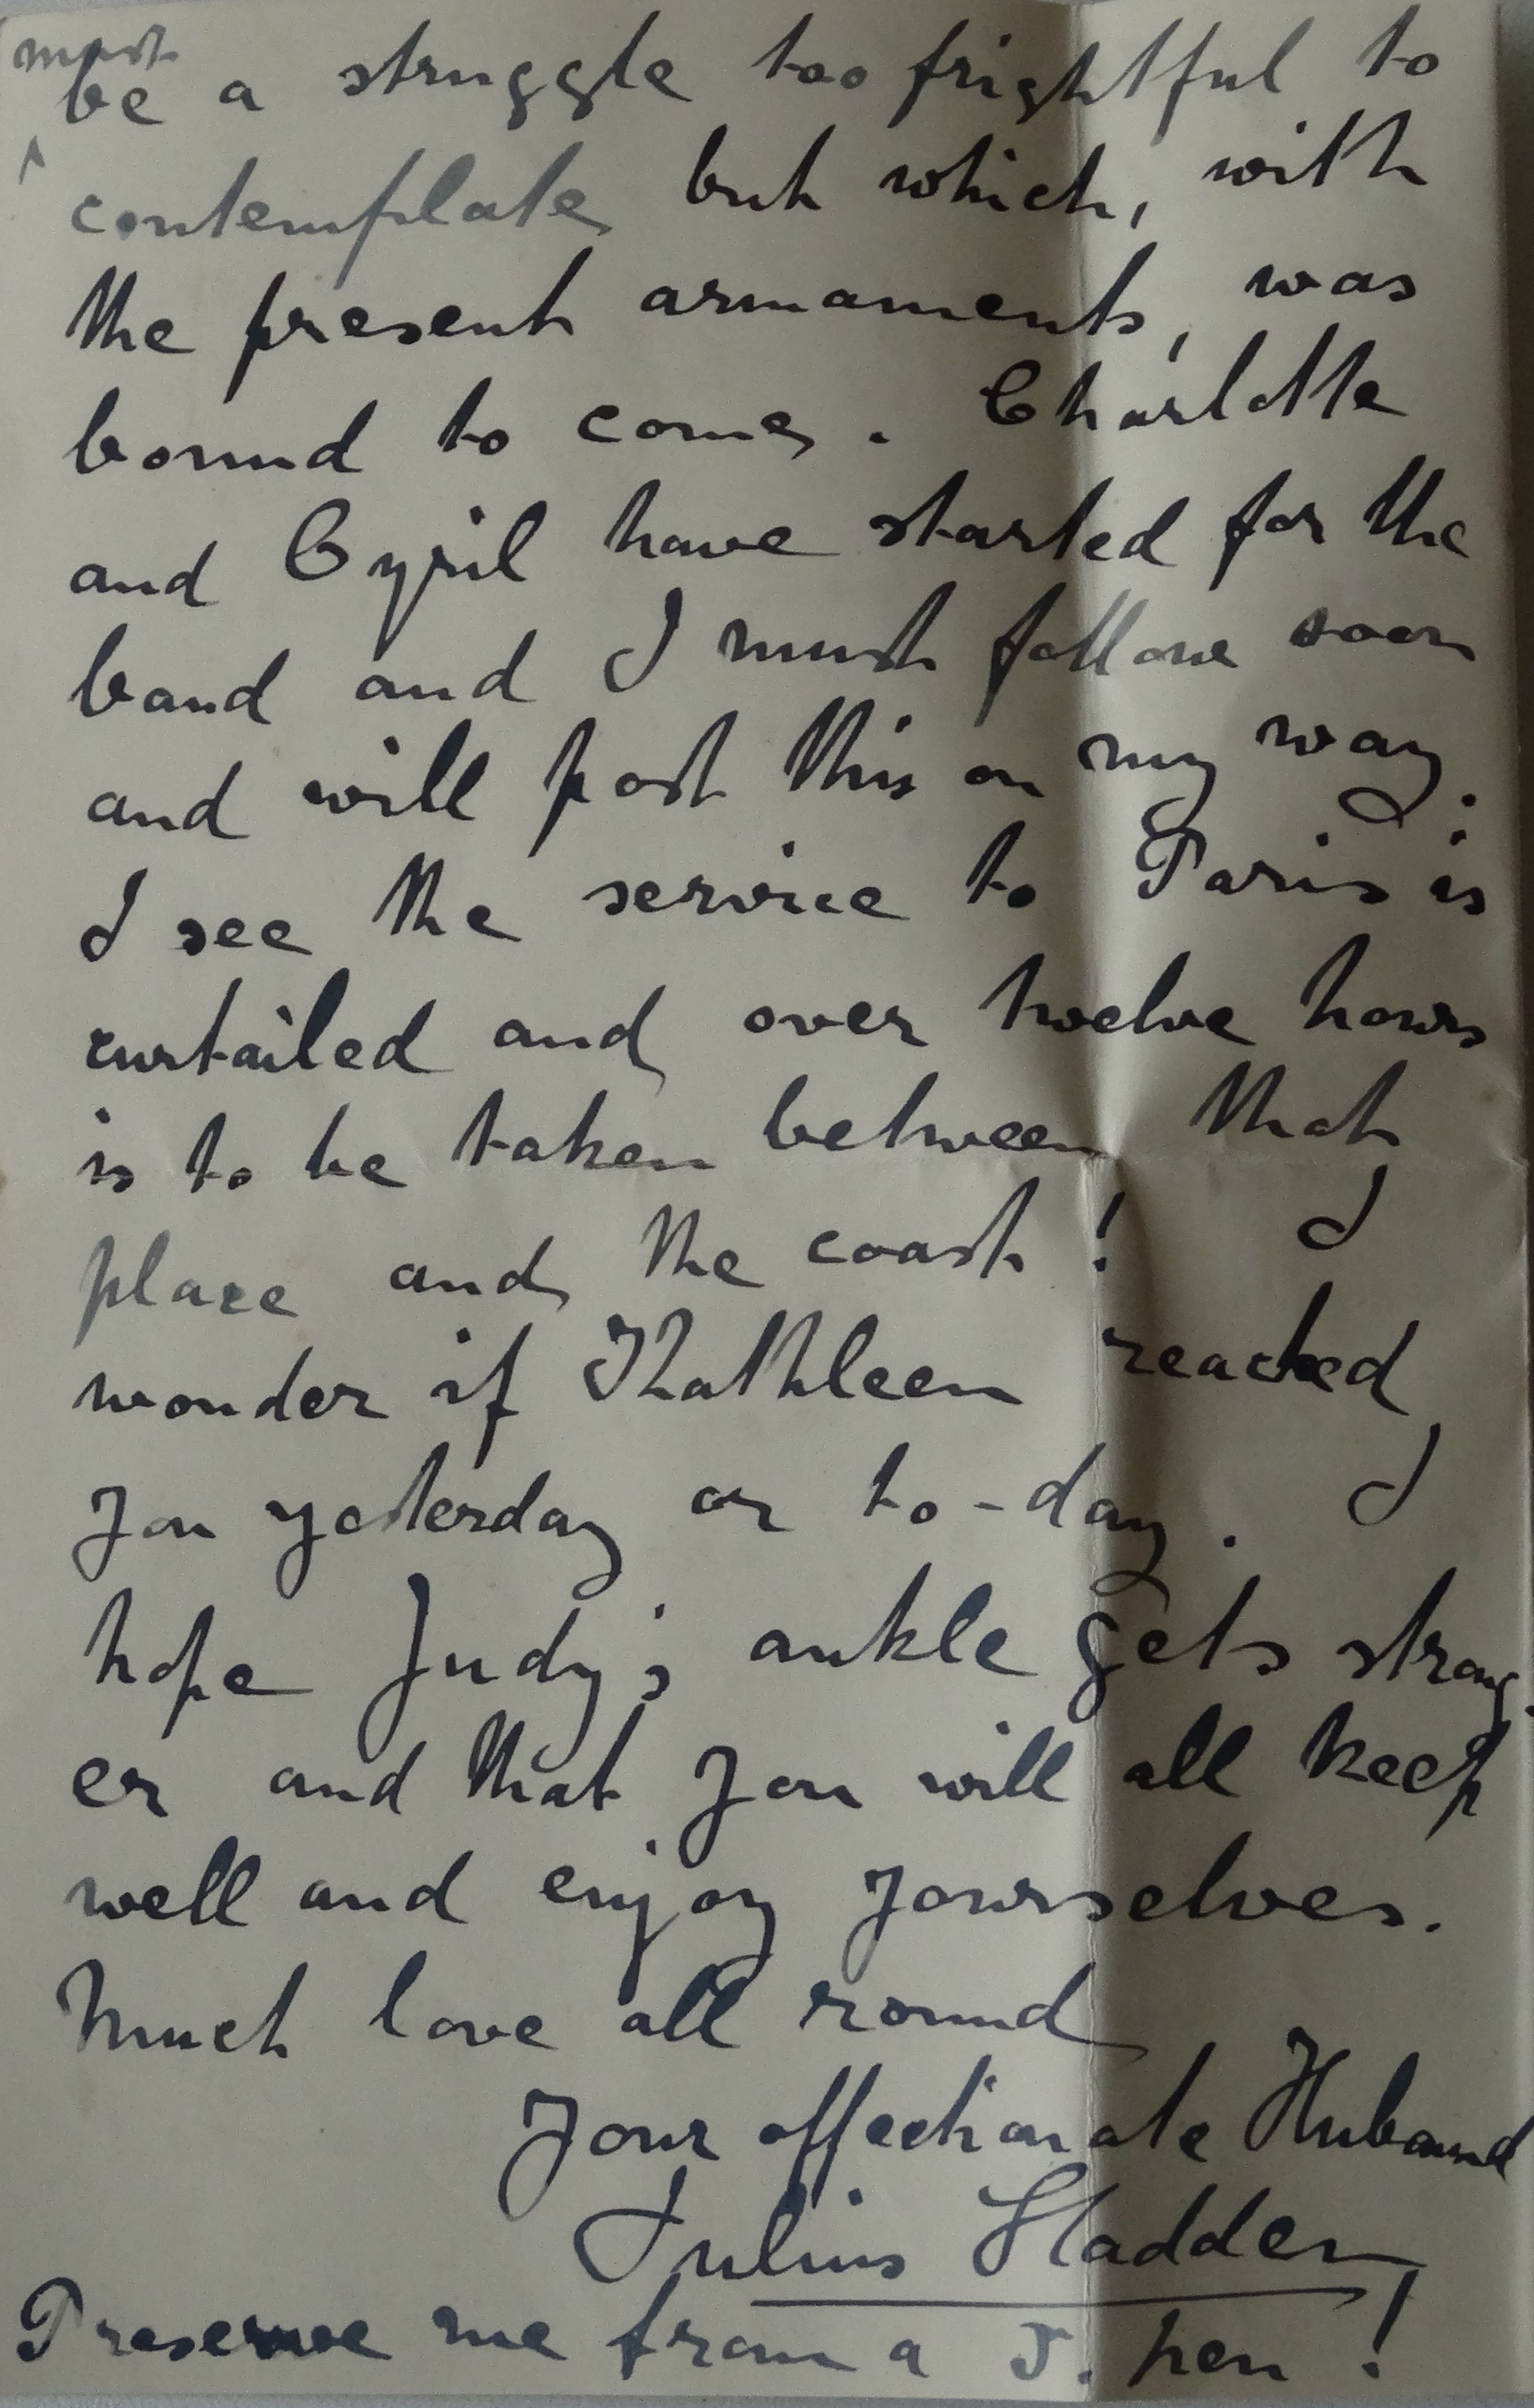 must
be a struggle too frightful to
contemplate but which, with
the present armaments, was
bound to come. Charlotte
and Cyril have started for the
band and I must follow soon
and will post this on my way.
I see the service to Paris is
curtailed and over twelve hours
is to be taken between that
place and the coast! I
wonder if Kathleen reached
you yesterday or to-day. I
hope Judy's ankle gets strong-
er and that you will all keep
well and enjoy yourselves.
Much love all round
Your affectionate Huband
Julius Hadden
Preserve me from a J. pen!